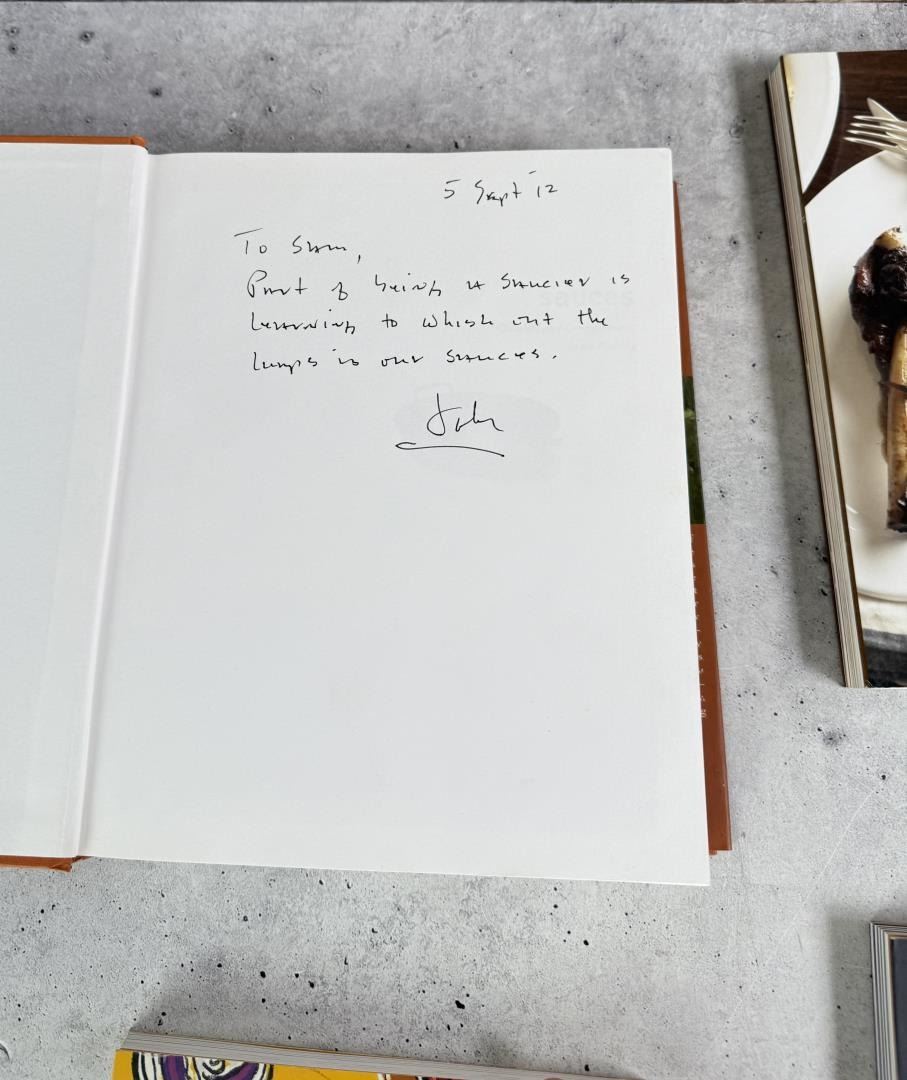 5 Sept '12
To Sam,
Part of being a saucier is
learning to whisk out the
lumps in our sauces.
John
sauces